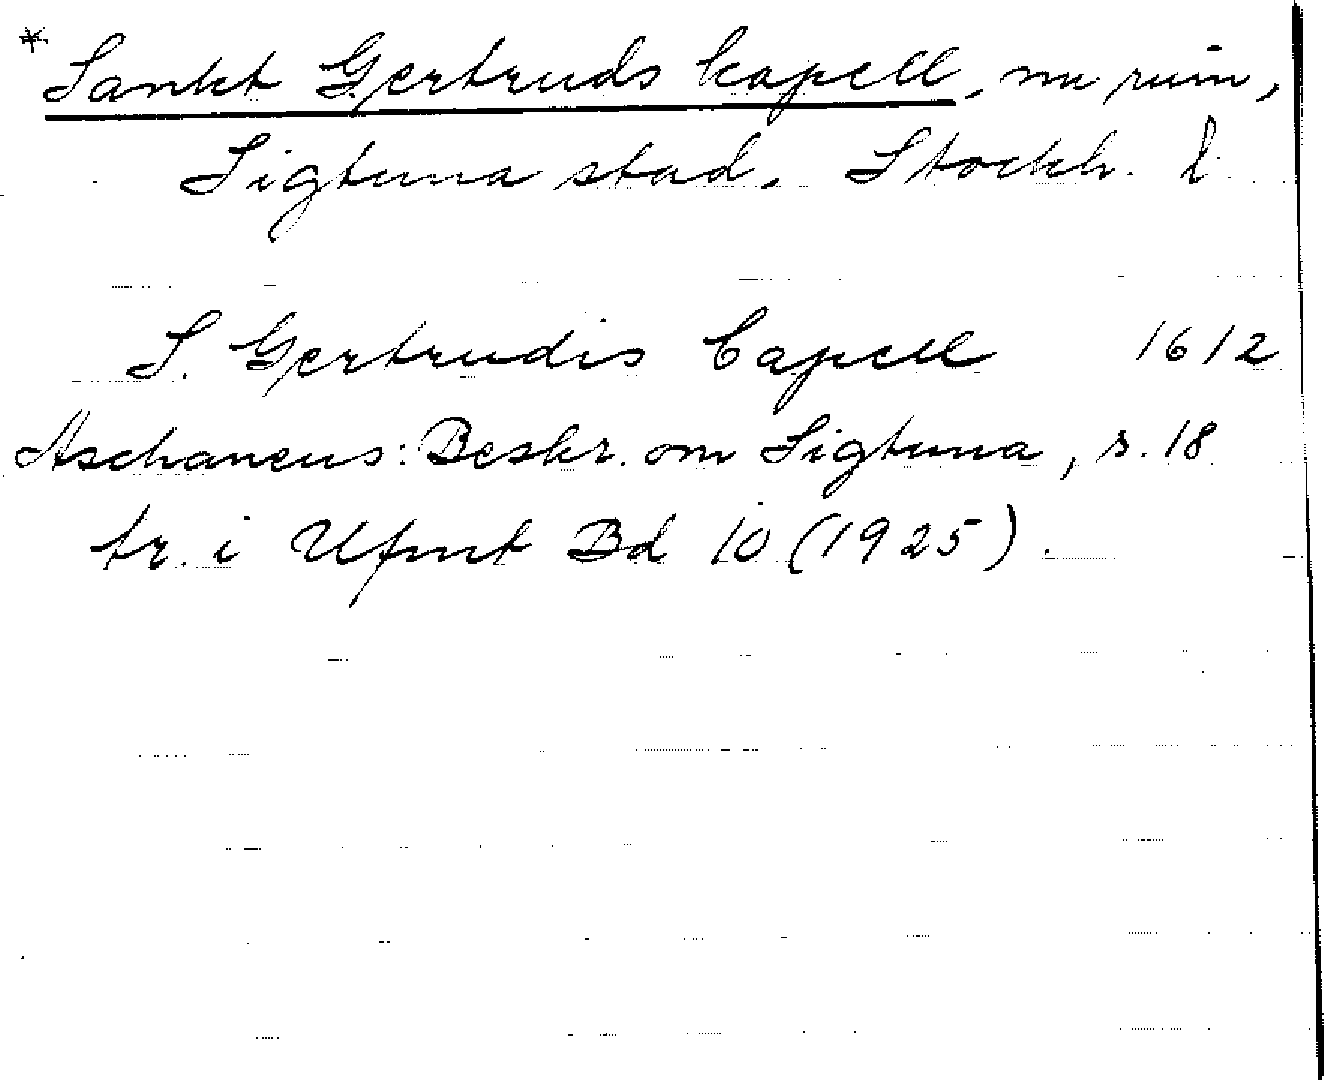 * Sankt Gertruds kapell, nu ruin,
Sigtuna stad, Stockh. l.
S. Gertrudis Capell 1612
Aschaneus: Beskr. om Sigtuna, s. 18
tr. i Ufmt Bd 10 (1925).